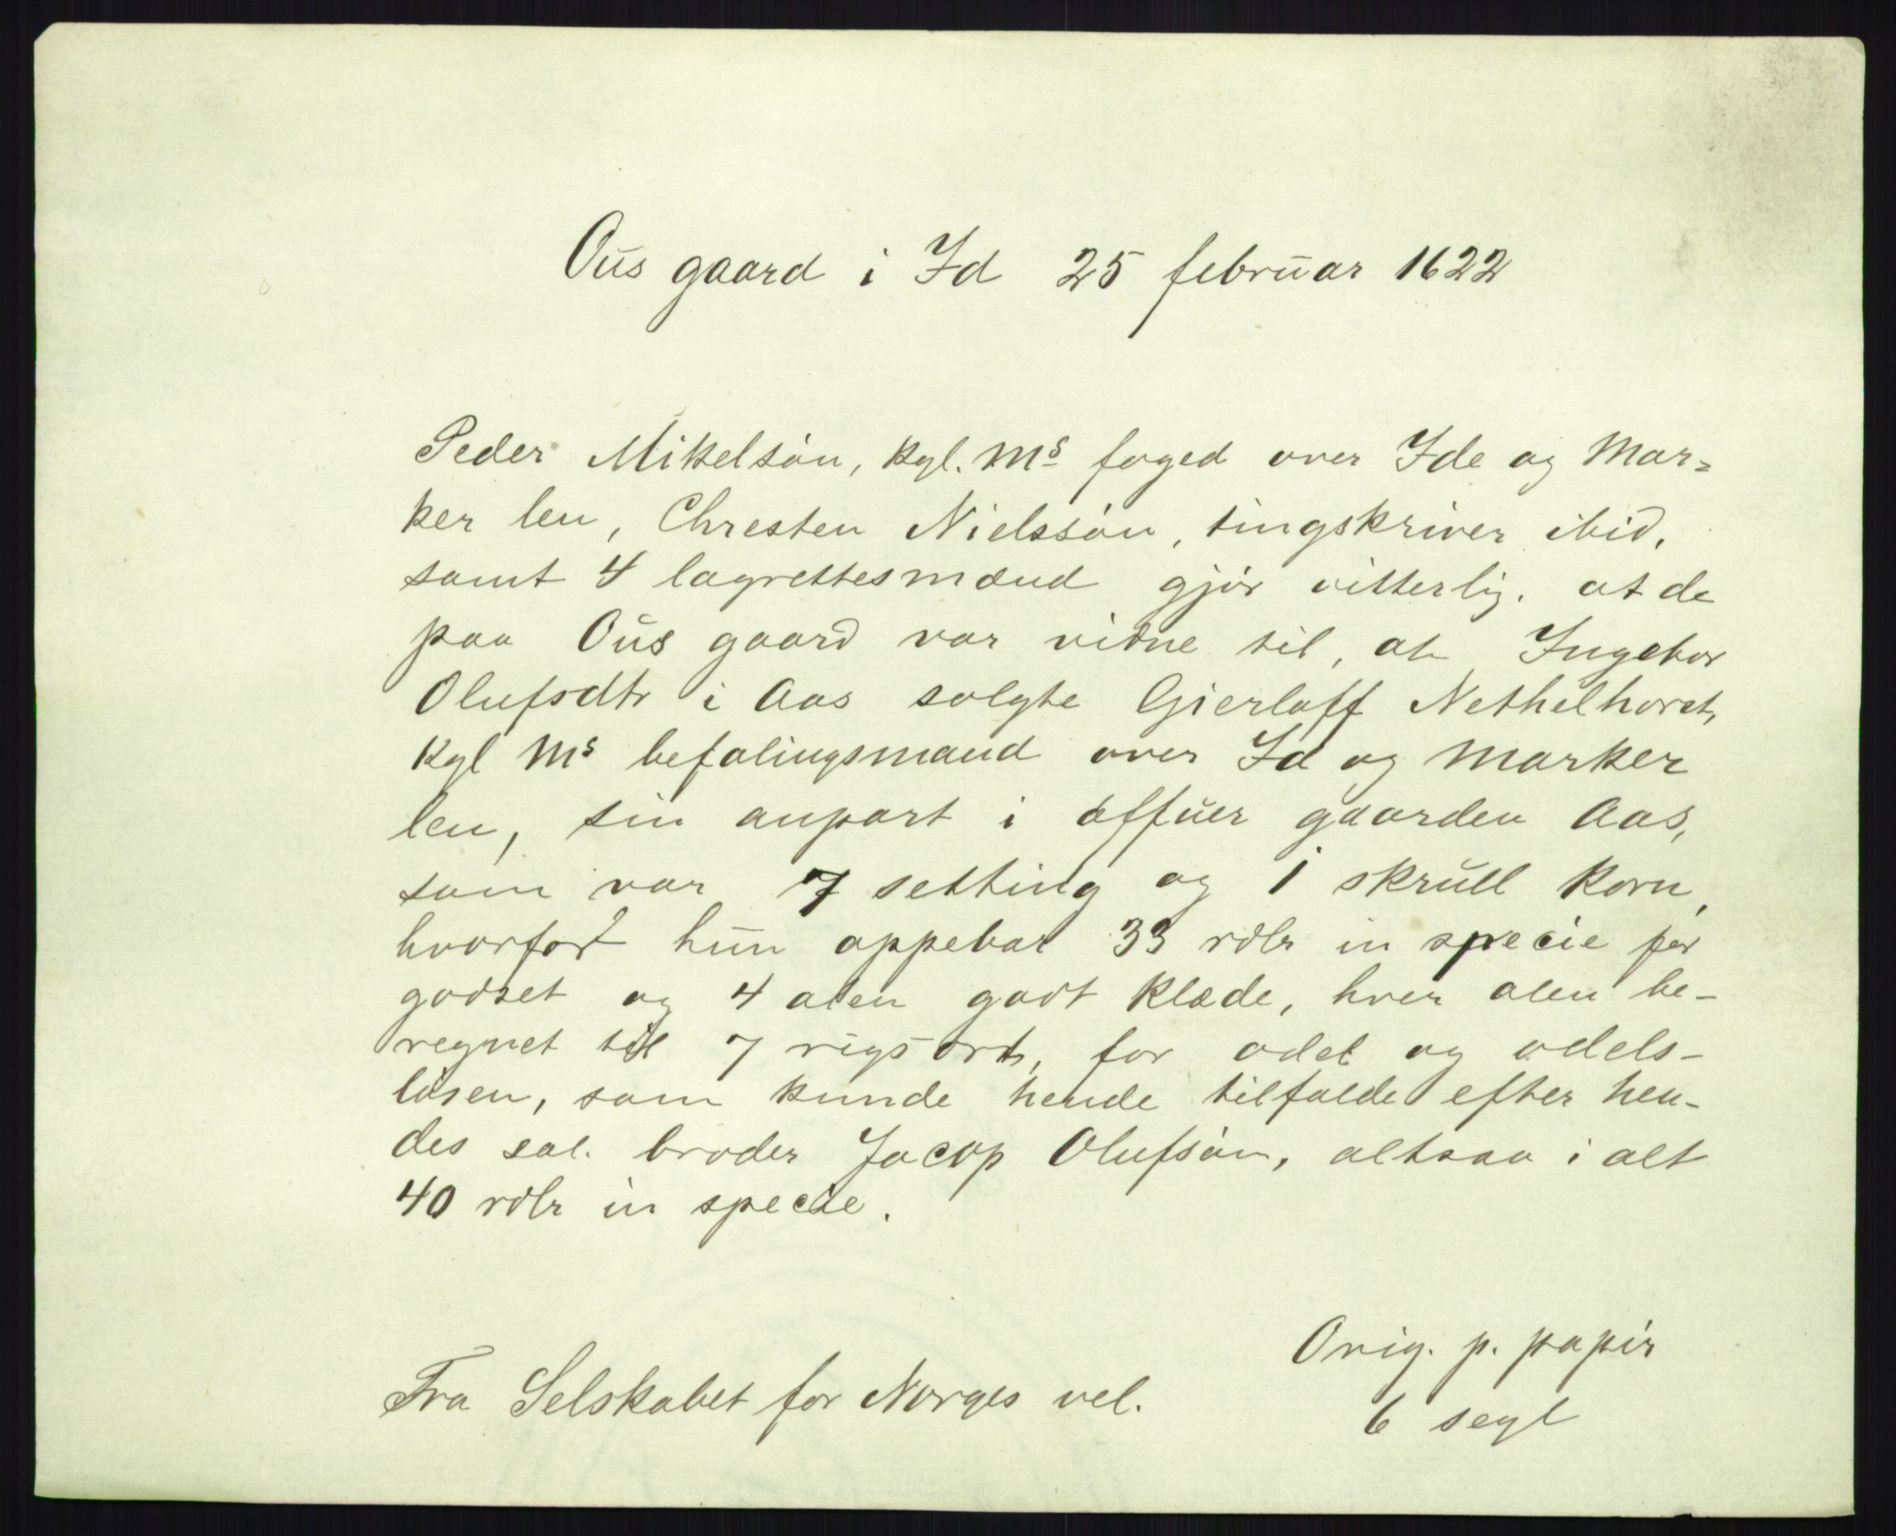 Ous gaard i Id 25 februar 1622
Peder Mikelsön, kgl. Ms foged over Ide og Mar=
ker len, Chresten Nielssön, tingskriver ibid.
samt 4 lagrettesmænd gjör vitterlig. at de
paa Ous gaard var vidne til, at Ingebor
Olufsdtr i Aas solgte Gierloff Nethelhorst,
kgl Ms befalingsmand over Id og Marker
len, sin anpart i öffuer gaarden Aas,
som var 7 setting og 1 skrull korn,
hvorfor hun oppebar 33 rdlr in specie for
godset og 4 alen godt klæde, hver alen be-
regnet til 7 rigsort, for odel og odels-
lösen, som kunde hende tilfalde efter hen-
des sal. broder Jacop Olufsön, altsaa i alt
40 rdlr in specie.
Orig. p. papir
Fra Selskabet for Norges vel.
6 segl